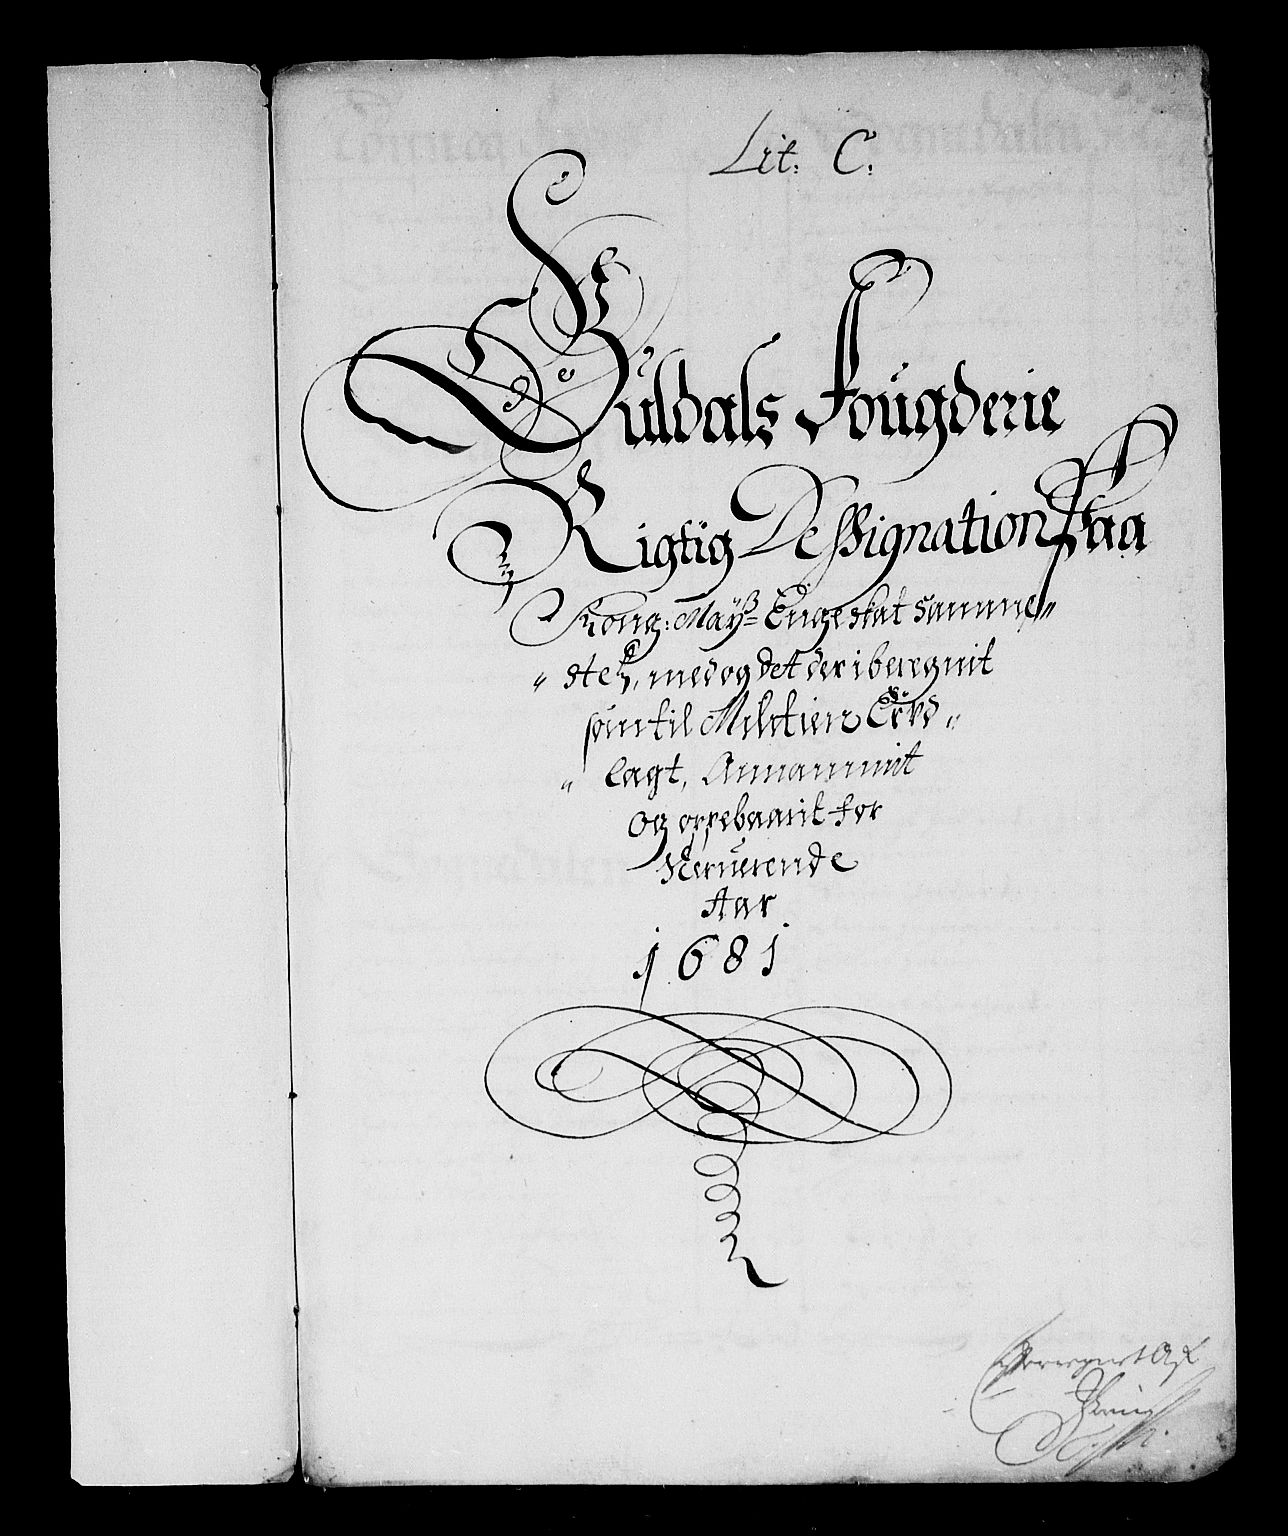 Lit: C:
Guldals Fougderie
Rigtig Dessignation Paa
Kong: Mayß Enge skat samme"
" sted, med og det der iberegnit
som til Militien
" lagt, Annammit
og oppebaarit for
Neruerende
Aar
1681